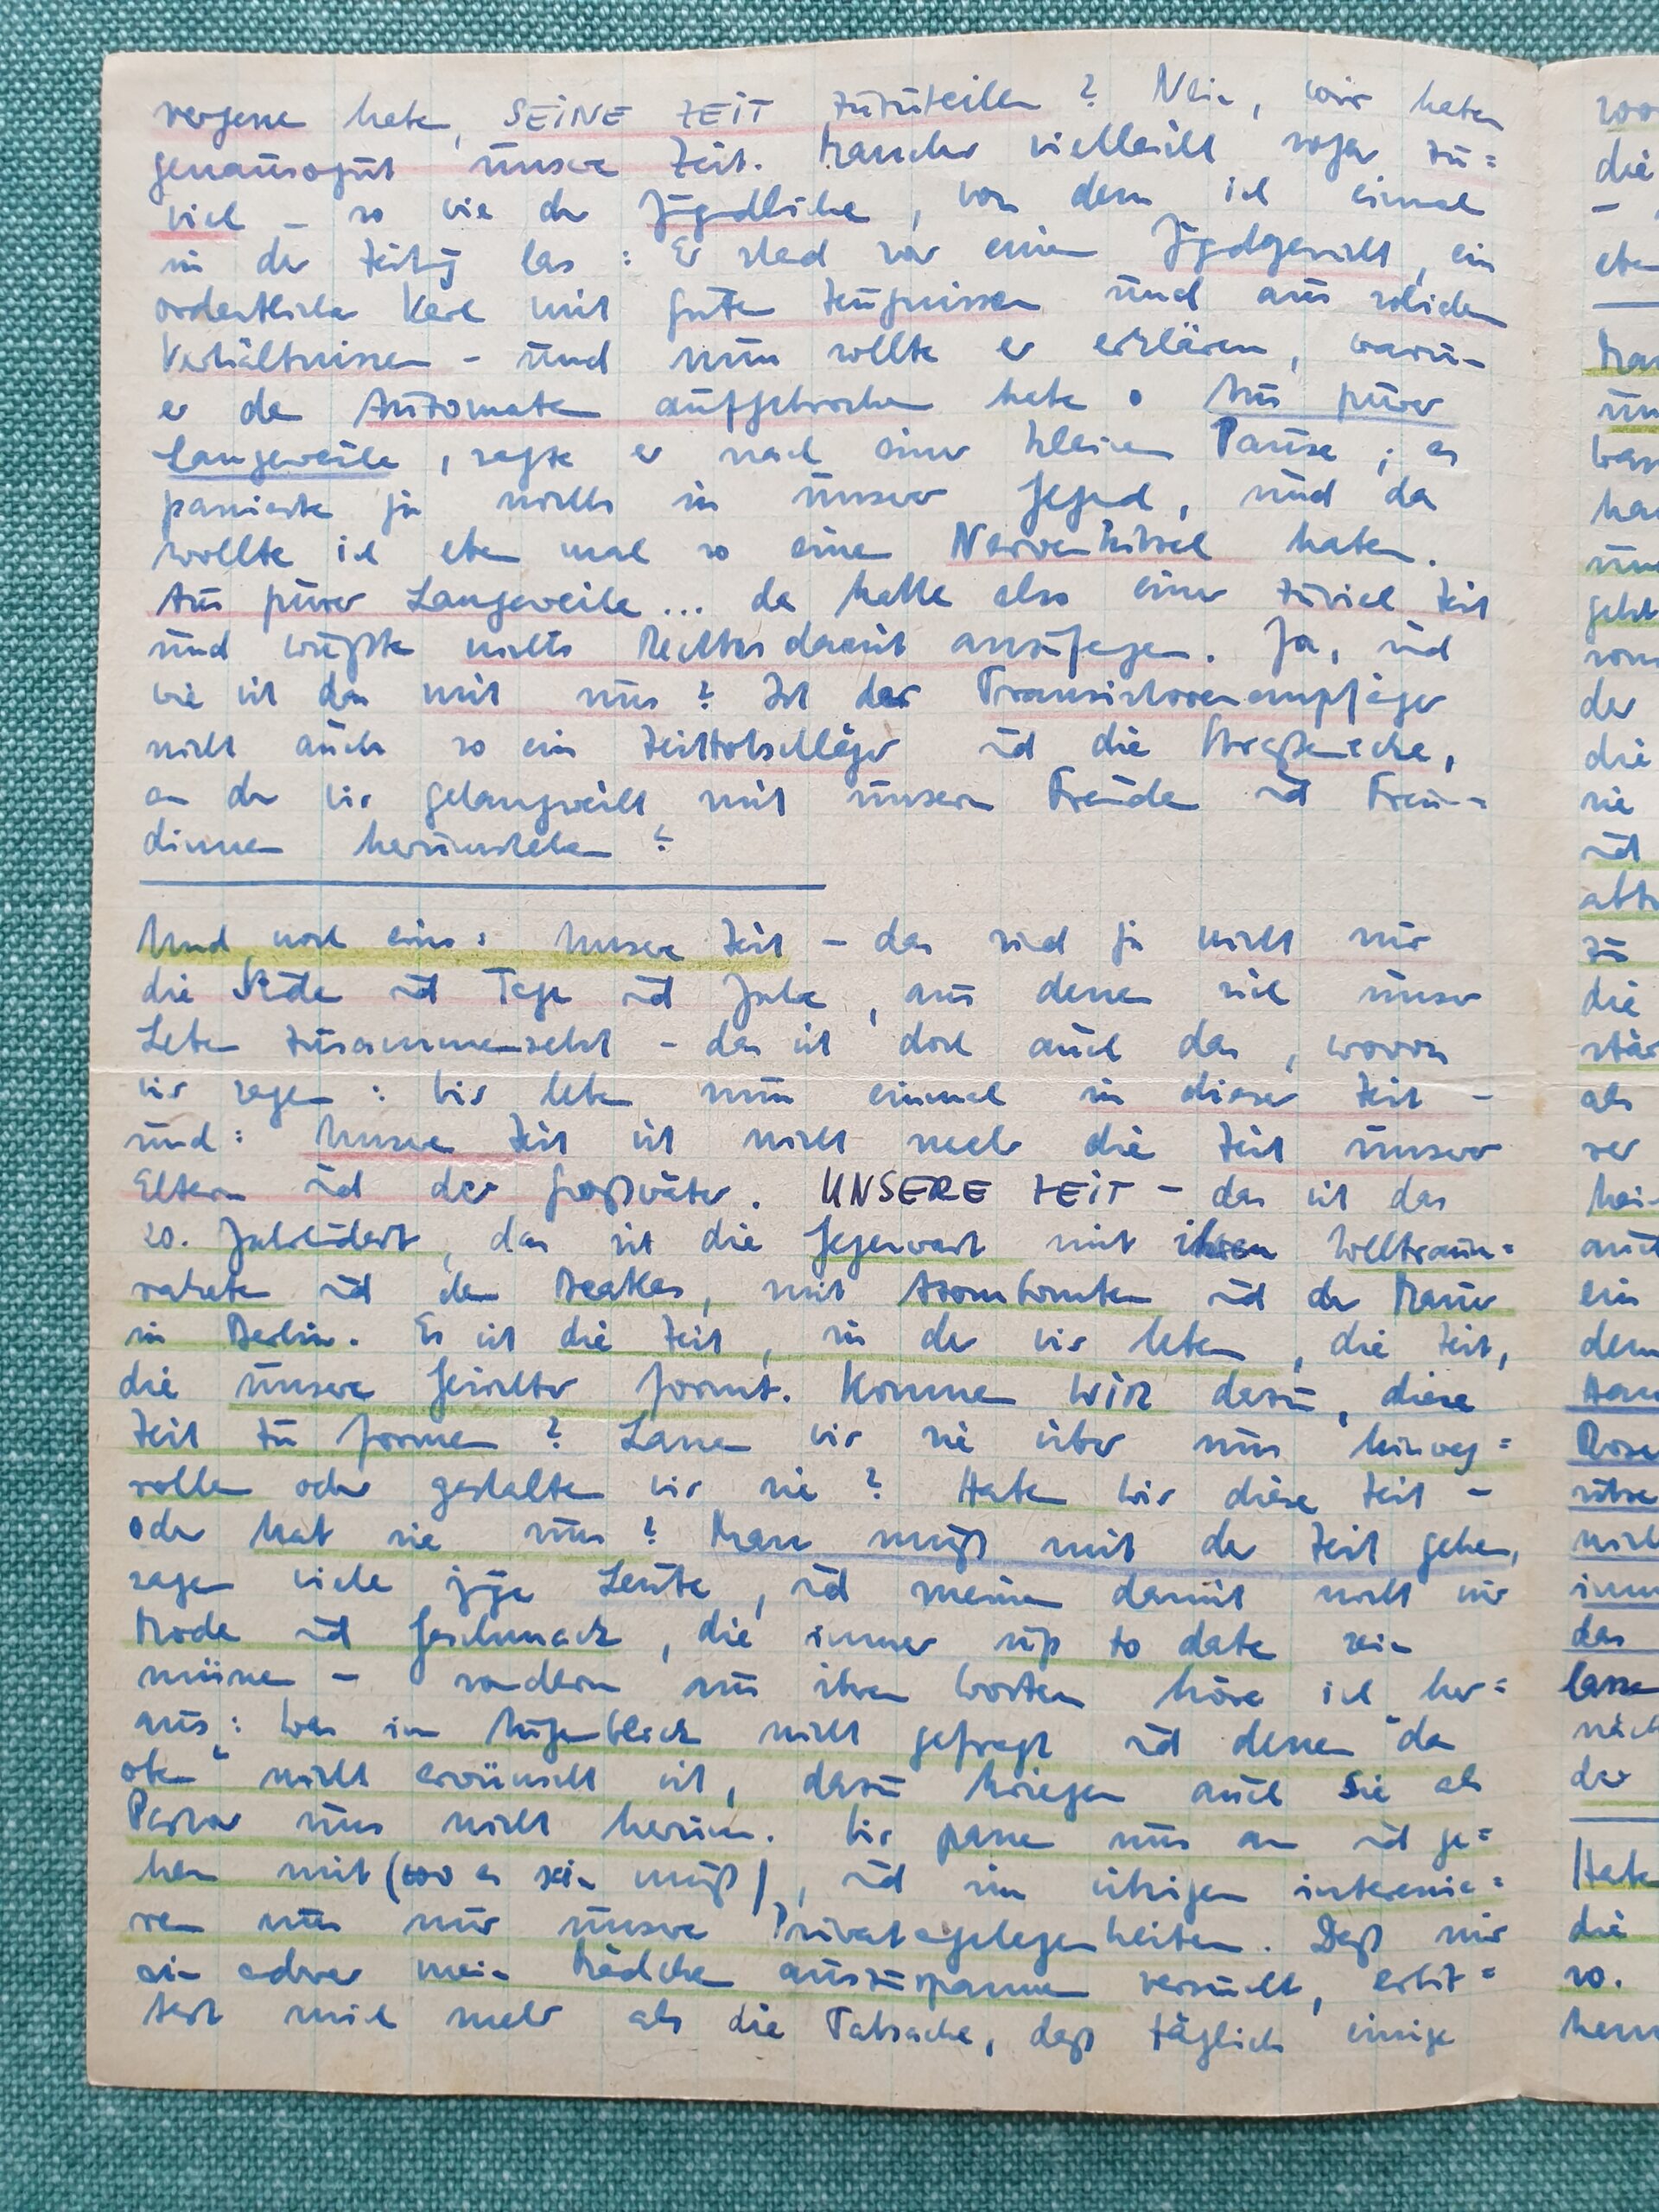 vergessen habe, SEINE ZEIT zuzuteilen? Nein, wir haben
genausogut unsere Zeit. Mancher vielleicht sogar zu=
viel – so wie der Jugendliche, von dem ich einmal
in der Zeitung las: Er stand vor einem Jugendgericht, ein
ordentlicher Kerl mit guten Zeugnissen und aus soliden
Verhältnissen – und nun sollte er erklären, warum
er den Automaten aufgebrochen habe. Aus purer
Langeweile, sagte er nach einer kleinen Pause; es
passierte ja nichts in unserer Gegend, und da
wollte ich eben mal so einen Nervenkitzel haben.
Aus purer Langeweile... da hatte also einer zuviel Zeit
und wußte nichts Rechtes damit anzufangen. Ja, und
wie ist das mit uns? Ist der Transistorenempfänger
nicht auch so ein Zeittotschläger und die Straßenecke,
an der wir gelangweilt mit unseren Freunden und Freun-
dinnen herumstehen?
Und noch eins: Unsere Zeit – das sind ja nicht nur
die Stunden und Tage und Jahre, aus denen sich unser
Leben zusammensetzt – das ist doch auch das, wovon
wir sagen: Wir leben nun einmal in dieser Zeit –
und: Unsere Zeit ist nicht mehr die Zeit unserer
Eltern und der Großväter. UNSERE ZEIT – das ist das
20. Jahrhundert, das ist die Gegenwart mit ihren Weltraum=
raketen und den Beatles, mit Atombomben und der Mauer
in Berlin. Es ist die Zeit, in der wir leben, die Zeit,
die unsere Gesichter formt. Kommen WIR dazu, diese
Zeit zu formen? Lassen wir sie über uns hinweg=
rollen oder gestalten wir sie? Haben wir diese Zeit –
oder hat sie uns? Man muß mit der Zeit gehen,
sagen viele junge Leute, und meinen damit nicht nur
Mode und Geschmack, die immer up to date sein
müssen – sondern aus ihren Worten höre ich her=
aus: Was im Augenblick nicht gefragt und denen "da
oben" nicht erwünscht ist, dazu kriegen auch Sie als
Pastor uns nicht herum. Wir passen uns an und ge=
hen mit (wo es sein muß), und im übrigen interessie=
ren uns nur unsere Privatangelegenheiten. Daß mir
ein anderer mein Mädchen auszuspannen versucht, erbit=
tert mich mehr als die Tatsache, daß täglich einige
die
eben
der
die
sie
und
zu
die
als
ein
das
der
die
so.